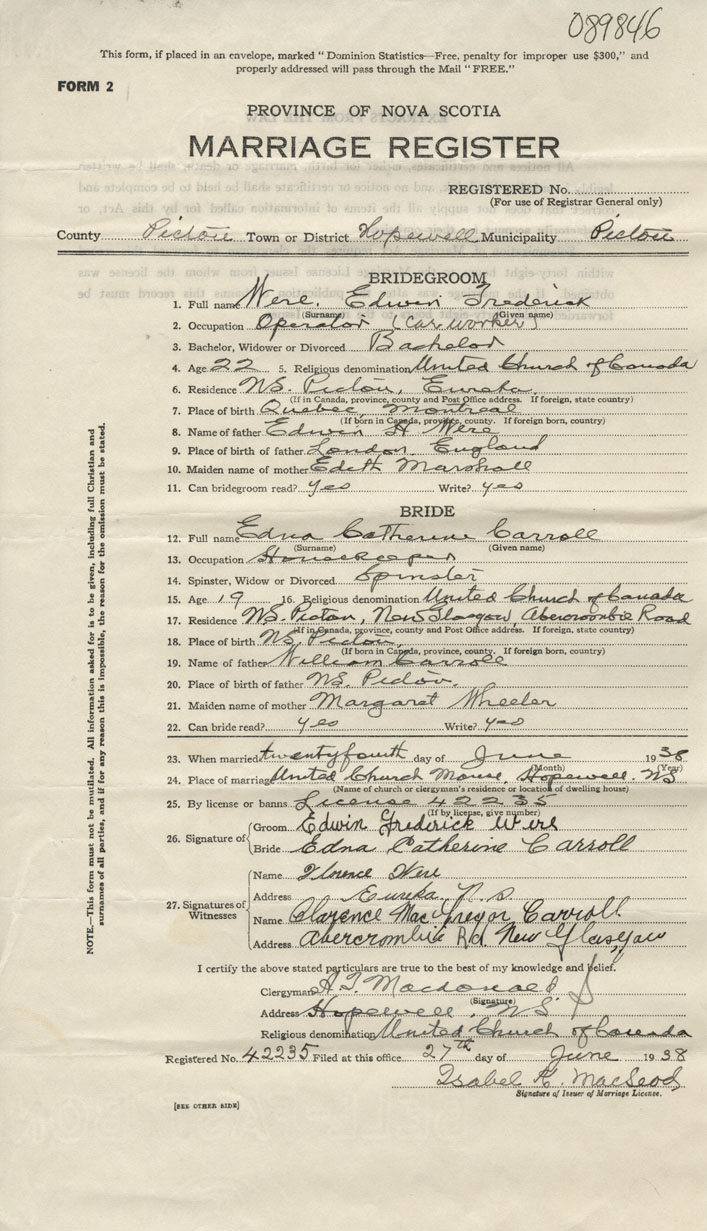 089846
This form, if placed in an envelope, marked "Dominion Statistics—Free, penalty for improper use $300," and
properly addressed will pass through the Mail "FREE."
FORM 2
PROVINCE OF NOVA SCOTIA
MARRIAGE REGISTER
REGISTERED No.
(For use of Registrar General only)
County Pictou Town or District Hopewell Municipality Pictou
BRIDEGROOM
1. Full name Were, Edwin Frederick
(Surname) (Given name)
2. Occupation Operator (Car worker)
3. Bachelor, Widower or Divorced Bachelor
4. Age 22 5. Religious denomination United Church of Canada
6. Residence NS. Pictou, Eureka
(If in Canada, province, county and Post Office address. If foreign, state country)
7. Place of birth Quebec, Montreal
(If born in Canada, province, county. If foreign born, country)
8. Name of father Edwin H Were
9. Place of birth of father London England
10. Maiden name of mother Edith Marshall
11. Can bridegroom read? yes Write? yes
BRIDE
12. Full name Edna Catherine Carroll
(Surname) (Given name)
13. Occupation Housekeeper
14. Spinster, Widow or Divorced Spinster
15. Age 19 16. Religious denomination United Church of Canada
17. Residence NS. Pictou, New Glasgow, Abercrombie Road
(If in Canada, province, county and Post Office address. If foreign, state country)
18. Place of birth NS. Pictou
(If born in Canada, province, county. If foreign born, country)
19. Name of father William Carroll
20. Place of birth of father NS. Pictou.
21. Maiden name of mother Margaret Wheeler
22. Can bride read? yes Write? yes
23. When married twenty fourth day of June 1938
(Month) (Year)
24. Place of marriage United Church Manse, Hopewell. NS
(Name of church or clergyman's residence or location of dwelling house)
25. By license or banns License 42235
(If by license, give number)
26. Signature of Groom Edwin Frederick Were
Bride Edna Catherine Carroll
27. Signatures of Witnesses
Name Florence Were
Address Eureka N.S.
Name Clarence MacGregor Carroll
Address Abercrombie Rd. New Glasgow
I certify the above stated particulars are true to the best of my knowledge and belief.
Clergyman Macdonald
(Signature)
Address Hopewell, NS
Religious denomination United Church of Canada
Registered No. 42235 Filed at this office 27th day of June 1938
Isabel K. MacLeod
Signature of Issuer of Marriage License.
[SEE OTHER SIDE]
NOTE.—This form must not be mutilated. All information asked for is to be given, including full Christian and
surnames of all parties, and if for any reason this is impossible, the reason for the omission must be stated.